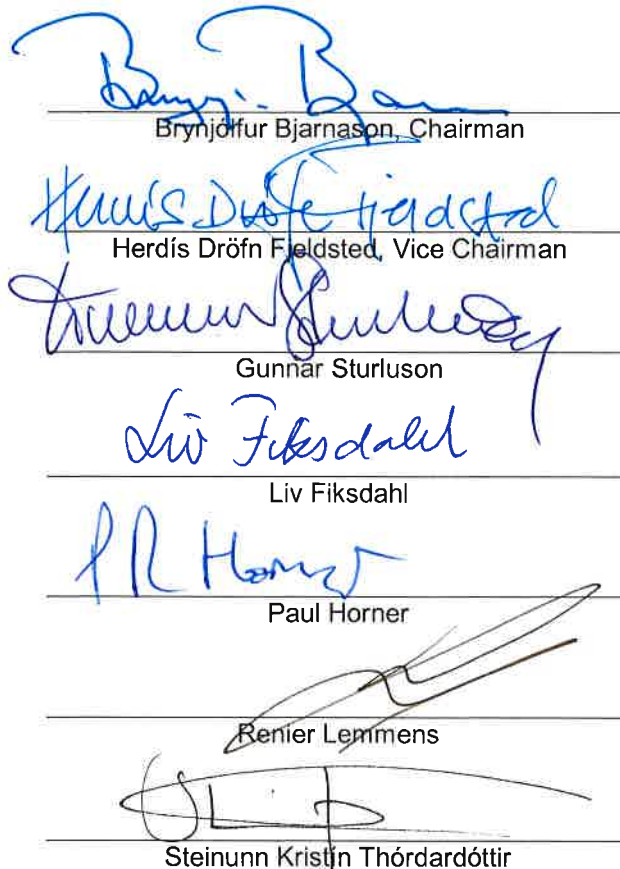 Brynjólfur Bjarnason, Chairman
Herdís Dröfn Fjeldsted
Herdís Dröfn Fjeldsted, Vice Chairman
Gunnar Sturluson
Liv Fiksdahl
Liv Fiksdahl
P R Horner
Paul Horner
Renier Lemmens
Steinunn Kristín Thórdardóttir